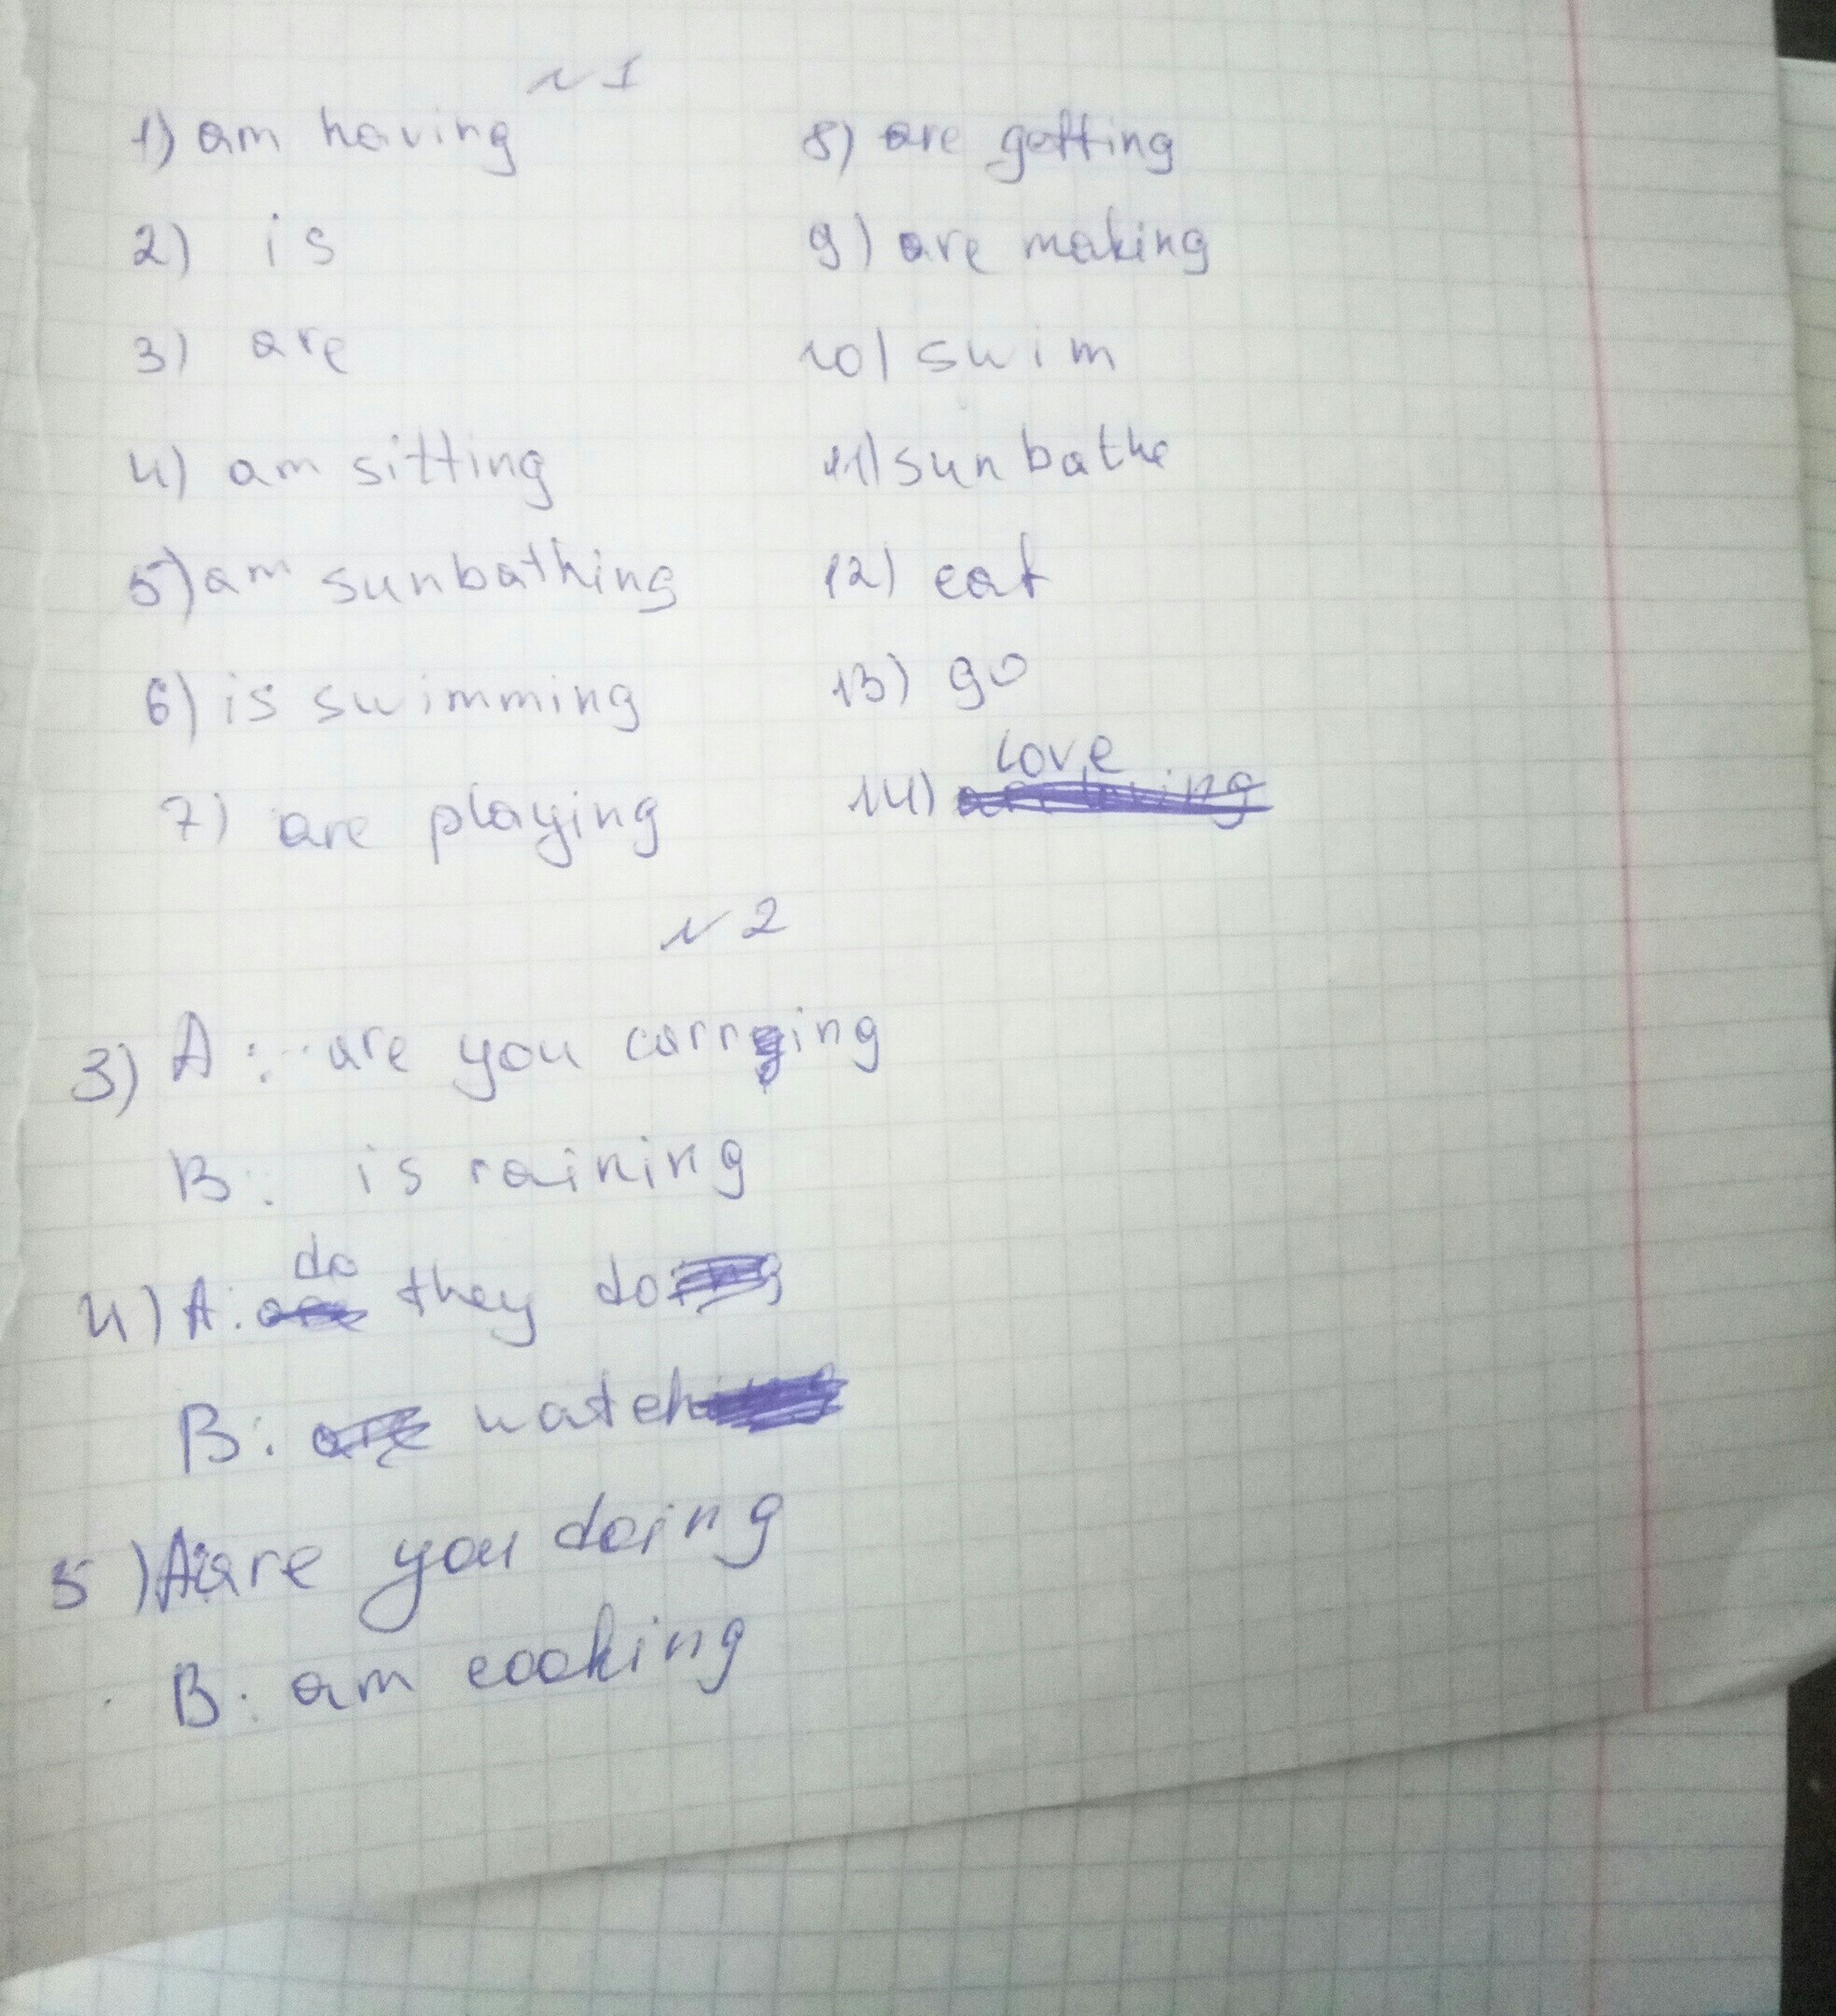 №1
1) am having
2) is
3) are
4) am sitting
5) am sunbathing
6) is swimming
7) are playing
8) are getting
9) are making
10) swim
11) sunbathe
12) eat
13) go
14) love
№2
3) A: are you carrying
B: is raining
4) A: do they do
B: watch
5) A: are you doing
B: am cooking